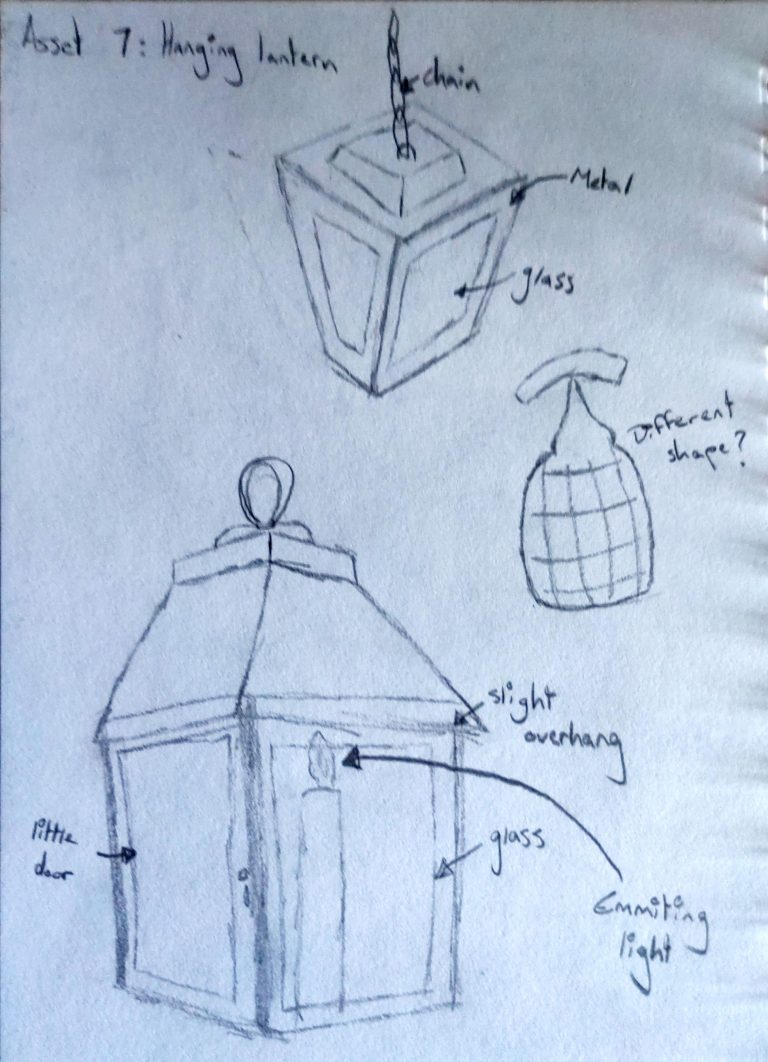 Asset 7: Hanging lantern
chain
Metal
glass
Different
shape?
slight
overhang
little
door
glass
Emmiting
light